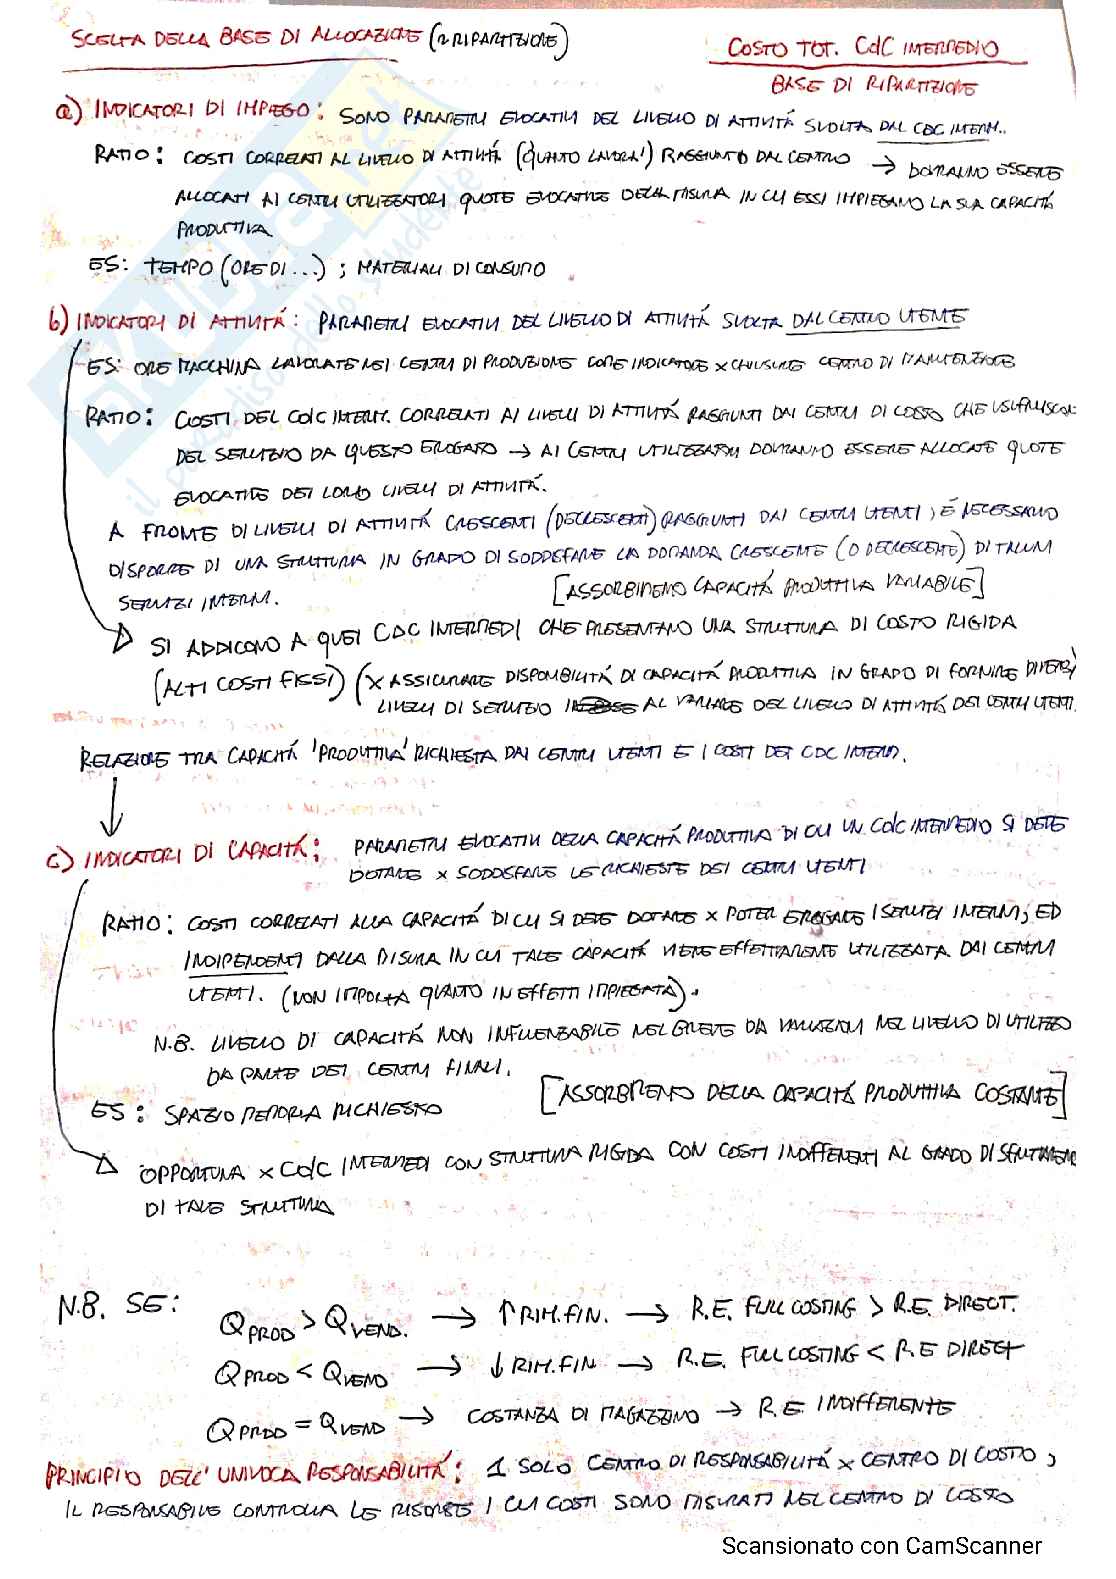 SCELTA DELLA BASE DI ALLOCAZIONE (O RIPARTIZIONE)
COSTO TOT. CdC INTERMEDIO
BASE DI RIPARTIZIONE
a) INDICATORI DI IMPIEGO: SONO PARAMETRI EVOCATIVI DEL LIVELLO DI ATTIVITÁ SVOLTA DAL CDC INTERM..
RATIO: COSTI CORRELATI AL LIVELLO DI ATTIVITÁ (QUANTO LAVORA') RAGGIUNTO DAL CENTRO → DOVRANNO ESSERE
ALLOCATI AI CENTRI UTILIZZATORI QUOTE EVOCATIVE DELLA MISURA IN CUI ESSI IMPIEGANO LA SUA CAPACITÁ
PRODUTTIVA
ES: TEMPO (ORE DI ...) ; MATERIALI DI CONSUMO
b) INDICATORI DI ATTIVITÁ: PARAMETRI EVOCATIVI DEL LIVELLO DI ATTIVITÁ SVOLTA DAL CENTRO UTENTE
ES: ORE MACCHINA LAVORATE NEI CENTRI DI PRODUZIONE COME INDICATORE x CHIUSURE CENTRO DI MANUTENZIONE
RATIO: COSTI DEL CdC INTERM. CORRELATI AI LIVELLI DI ATTIVITÁ RAGGIUNTI DAI CENTRI DI COSTO CHE USUFRUISCON
DEL SERVIZIO DA QUESTO EROGATO → AI CENTRI UTILIZZATORI DOVRANNO ESSERE ALLOCATE QUOTE
EVOCATIVE DEI LORO LIVELLI DI ATTIVITÁ.
A FRONTE DI LIVELLI DI ATTIVITÁ CRESCENTI (DECRESCENTI) RAGGIUNTI DAI CENTRI UTENTI, É NECESSARIO
DISPORRE DI UNA STRUTTURA IN GRADO DI SODDISFARE LA DOMANDA CRESCENTE (O DECRESCENTE) DI TALUNI
SERVIZI INTERNI.
[ASSORBIMENTO CAPACITÁ PRODUTTIVA VARIABILE]
SI ADDICONO A QUEI CDC INTERMEDI CHE PRESENTANO UNA STRUTTURA DI COSTO RIGIDA
(ALTI COSTI FISSI) (x ASSICURARE DISPONIBILITÁ DI CAPACITÁ PRODUTTIVA IN GRADO DI FORNIRE DIVERSI
LIVELLI DI SERVIZIO AL VARIARE DEL LIVELLO DI ATTIVITÁ DEI CENTRI UTENTI.
RELAZIONE TRA CAPACITÁ 'PRODUTTIVA' RICHIESTA DAI CENTRI UTENTI E I COSTI DEI CDC INTERM.
c) INDICATORI DI CAPACITÁ: PARAMETRI EVOCATIVI DELLA CAPACITÁ PRODUTTIVA DI CUI UN CdC INTERMEDIO SI DEVE
DOTARE x SODDISFARE LE RICHIESTE DEI CENTRI UTENTI
RATIO: COSTI CORRELATI ALLA CAPACITÁ DI CUI SI DEVE DOTARE x POTER EROGARE I SERVIZI INTERNI, ED
INDIPENDENTI DALLA MISURA IN CUI TALE CAPACITÁ VIENE EFFETTIVAMENTE UTILIZZATA DAI CENTRI
UTENTI. (NON IMPORTA QUANTO IN EFFETTI IMPIEGATA).
N.B. LIVELLO DI CAPACITÁ NON INFLUENZABILE NEL BREVE DA VARIAZIONI NEL LIVELLO DI UTILIZZO
DA PARTE DEI CENTRI FINALI.
[ASSORBIMENTO DELLA CAPACITÁ PRODUTTIVA COSTANTE]
ES: SPAZIO MEMORIA RICHIESTO
OPPORTUNA x CdC INTERMEDI CON STRUTTURA RIGIDA CON COSTI INDIFFERENTI AL GRADO DI SFRUTTAMEN
DI TALE STRUTTURA
N.B. SE: Q PROD > Q VEND. → ↑ RIM. FIN. → R.E. FULL COSTING > R.E. DIRECT.
Q PROD < Q VEND → ↓ RIM. FIN → R.E. FULL COSTING < R.E DIRECT
Q PROD = Q VEND → COSTANZA DI MAGAZZINO → R.E. INDIFFERENTE
PRINCIPIO DELL'UNIVOCA RESPONSABILITÁ: 1 SOLO CENTRO DI RESPONSABILITÁ x CENTRO DI COSTO;
IL RESPONSABILE CONTROLLA LE RISORSE I CUI COSTI SONO MISURATI NEL CENTRO DI COSTO
Scansionato con CamScanner